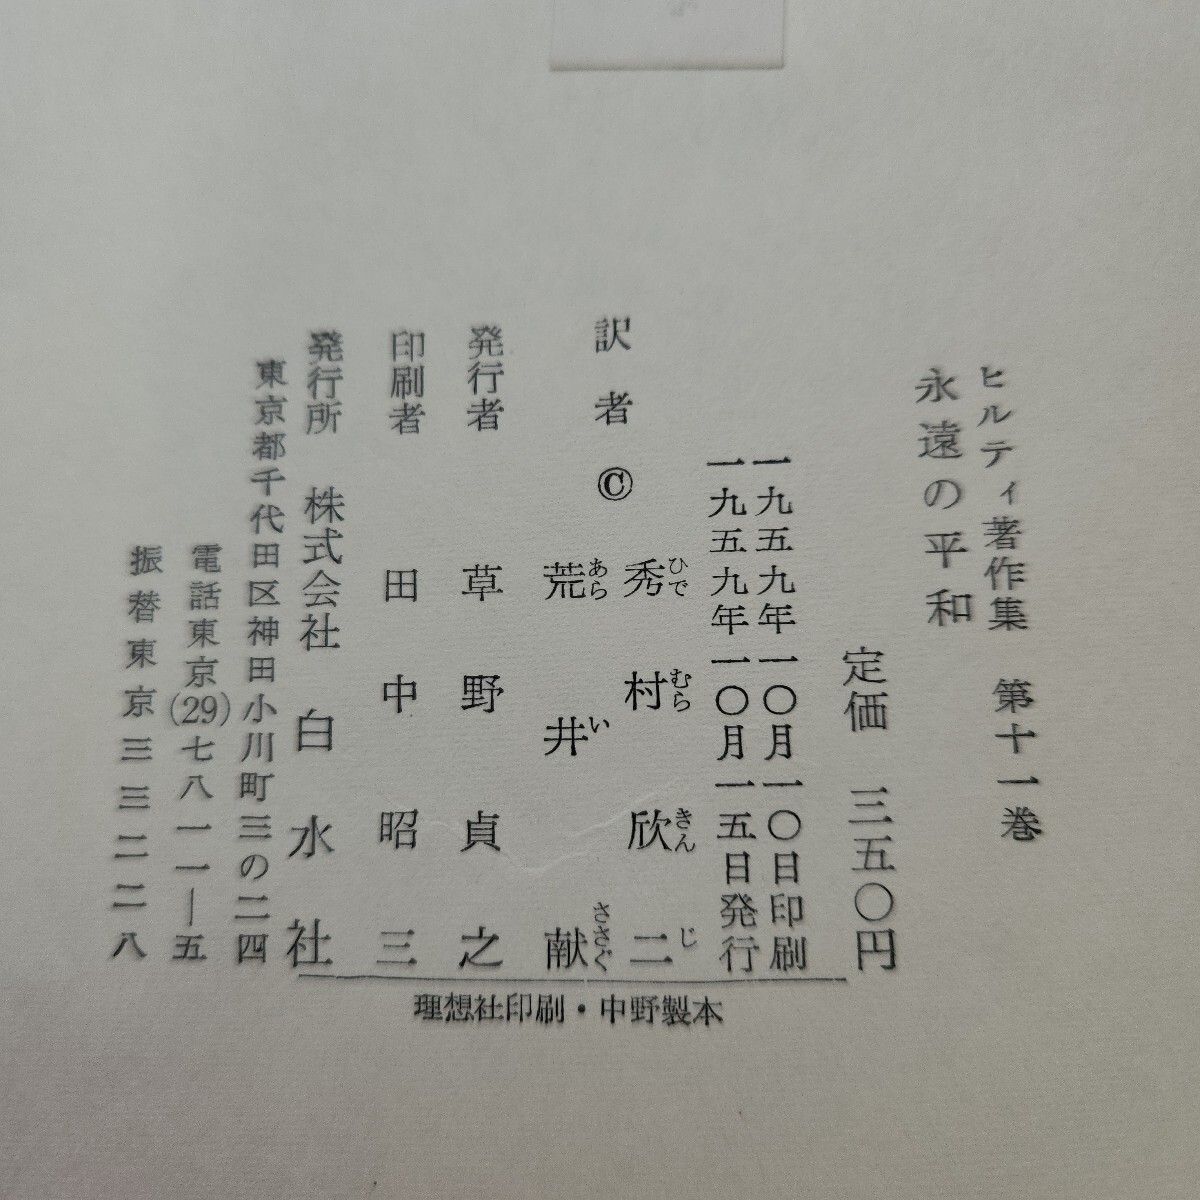 ヒルティ著作集　第十一巻
永遠の平和
定価　三五〇円
一九五九年一〇月一〇日印刷
一九五九年一〇月一五日発行
訳者 © 秀村欣二
ひで むら きん じ
荒井献
あら い ささぐ
発行者 草野貞之
印刷者 田中昭三
発行所 株式会社 白水社
東京都千代田区神田小川町三の二四
電話東京(29)七八一一―五
振替東京三三二二八
理想社印刷・中野製本